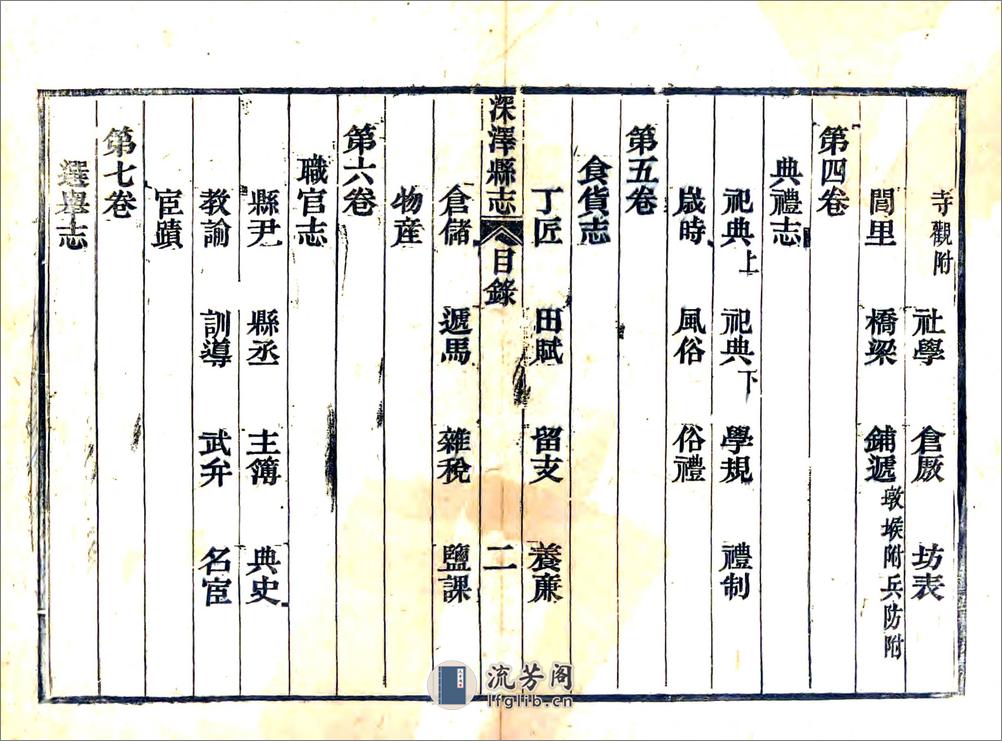 寺觀附 社學 倉厫 坊表
閭里 橋梁 鋪遞墩堠附兵防附
第四卷
典禮志
祀典上 祀典下 學規 禮制
歲時 風俗 俗禮
第五卷
食貨志
丁匠 田賦 留支 養廉
深澤縣志 目錄 二
倉儲 遞馬 雜稅 鹽課
物産
第六卷
職官志
縣尹 縣丞 主簿 典史
教諭 訓導 武弁 名宦
宦蹟
第七卷
選舉志
流芳阁
lfglib.cn